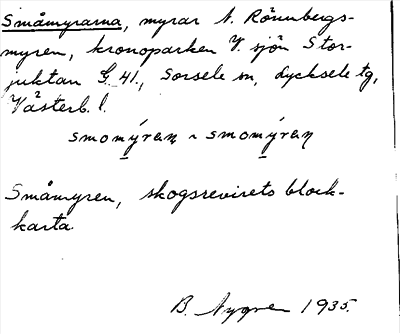 Småmyrarna, myrar N. Rönnbergs-
myren, kronoparken V. sjön Stor-
juktan G. 41., Sorsele sn, Lycksele tg,
Västerb. l.
smomýran ~ smomýran
Småmyren, skogsrevirets block-
karta.
B. Nygren 1935.